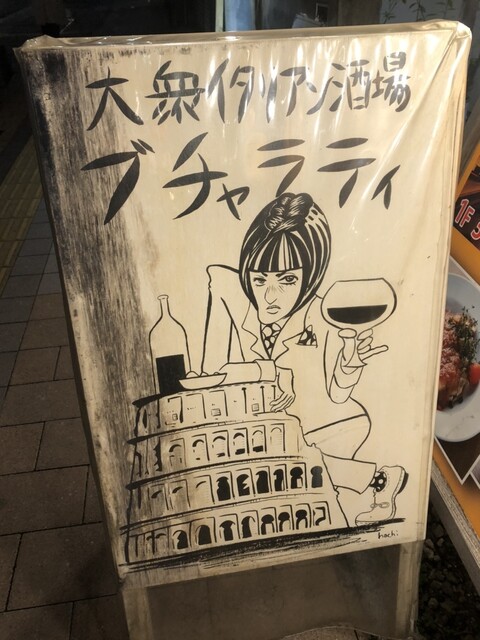 大衆イタリアン酒場
ブチャラティ
hachi
1F